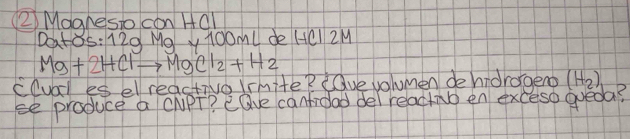 ② Magnesio con HCl
Datos: 12g Mg y 100mL de HCl 2M
Mg + 2HCl → MgCl2 + H2
¿Cual es el reactivo límite? ¿Que volumen de hidrogeno (H2)
se produce a CNPT? ¿Que cantidad del reactivo en exceso queda?